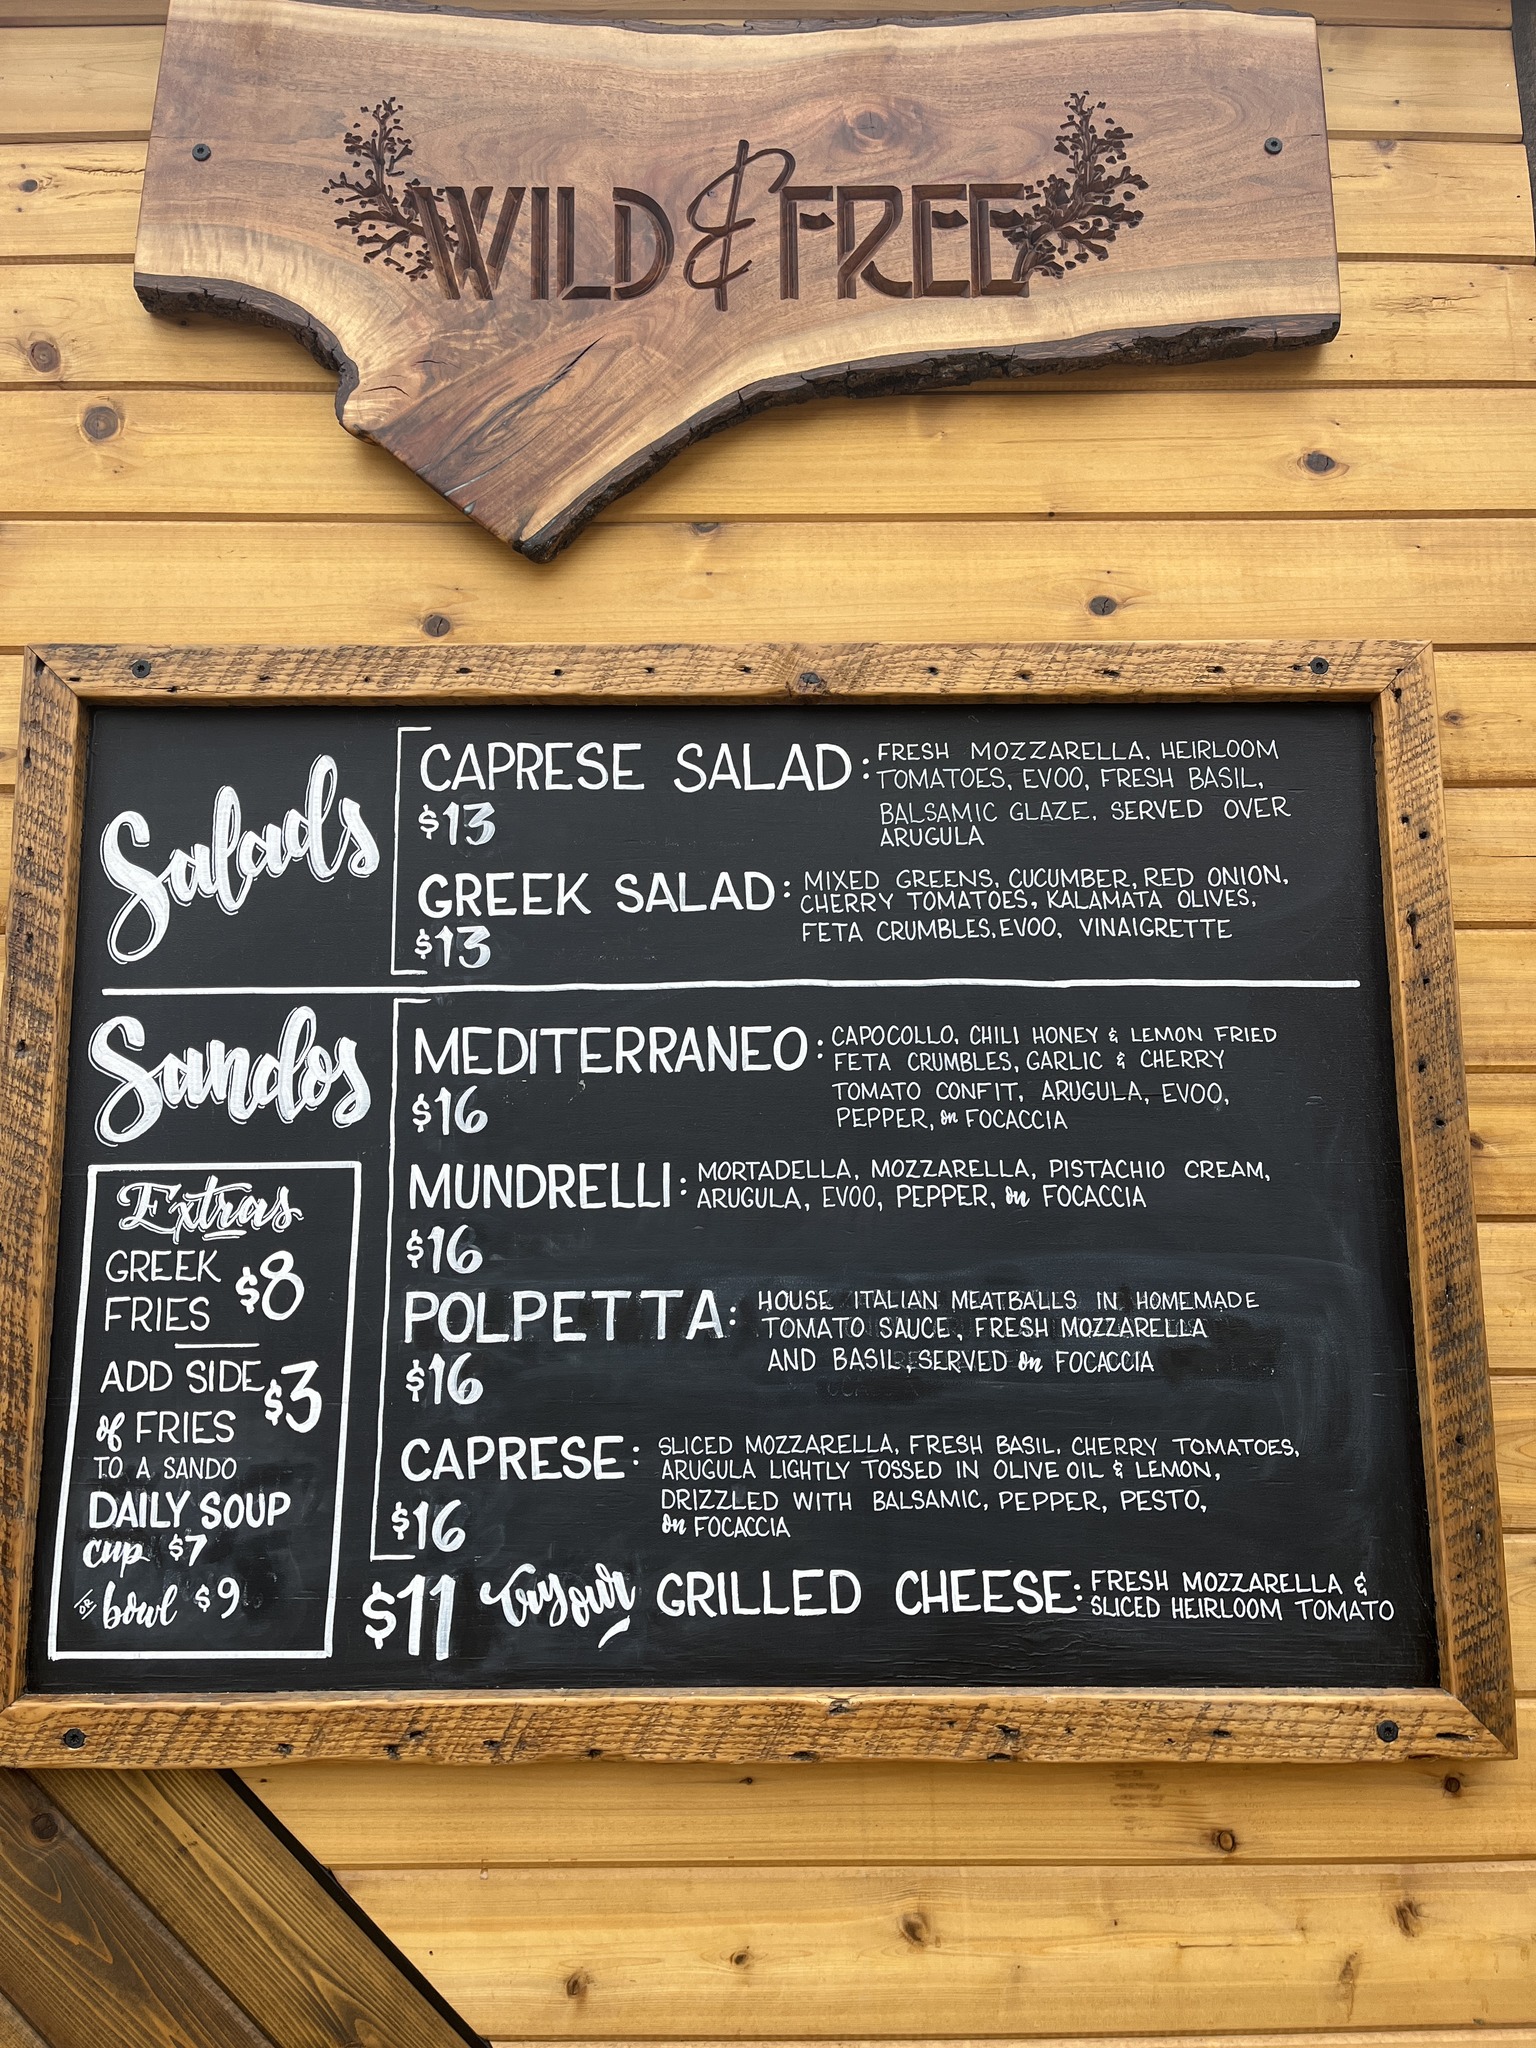 WILD & FREE
Salads
CAPRESE SALAD: FRESH MOZZARELLA, HEIRLOOM
TOMATOES, EVOO, FRESH BASIL,
$13
BALSAMIC GLAZE, SERVED OVER
ARUGULA
GREEK SALAD: MIXED GREENS, CUCUMBER, RED ONION,
CHERRY TOMATOES, KALAMATA OLIVES,
$13
FETA CRUMBLES, EVOO, VINAIGRETTE
Sandos
MEDITERRANEO: CAPOCOLLO, CHILI HONEY & LEMON FRIED
FETA CRUMBLES, GARLIC & CHERRY
$16
TOMATO CONFIT, ARUGULA, EVOO,
PEPPER, on FOCACCIA
MUNDRELLI: MORTADELLA, MOZZARELLA, PISTACHIO CREAM,
ARUGULA, EVOO, PEPPER, on FOCACCIA
$16
POLPETTA: HOUSE ITALIAN MEATBALLS IN HOMEMADE
TOMATO SAUCE, FRESH MOZZARELLA
$16
AND BASIL, SERVED on FOCACCIA
CAPRESE: SLICED MOZZARELLA, FRESH BASIL, CHERRY TOMATOES,
ARUGULA LIGHTLY TOSSED IN OLIVE OIL & LEMON,
$16
DRIZZLED WITH BALSAMIC, PEPPER, PESTO,
on FOCACCIA
$11 try our GRILLED CHEESE: FRESH MOZZARELLA &
SLICED HEIRLOOM TOMATO
Extras
GREEK
FRIES $8
ADD SIDE $3
of FRIES
TO A SANDO
DAILY SOUP
cup $7
OR bowl $9